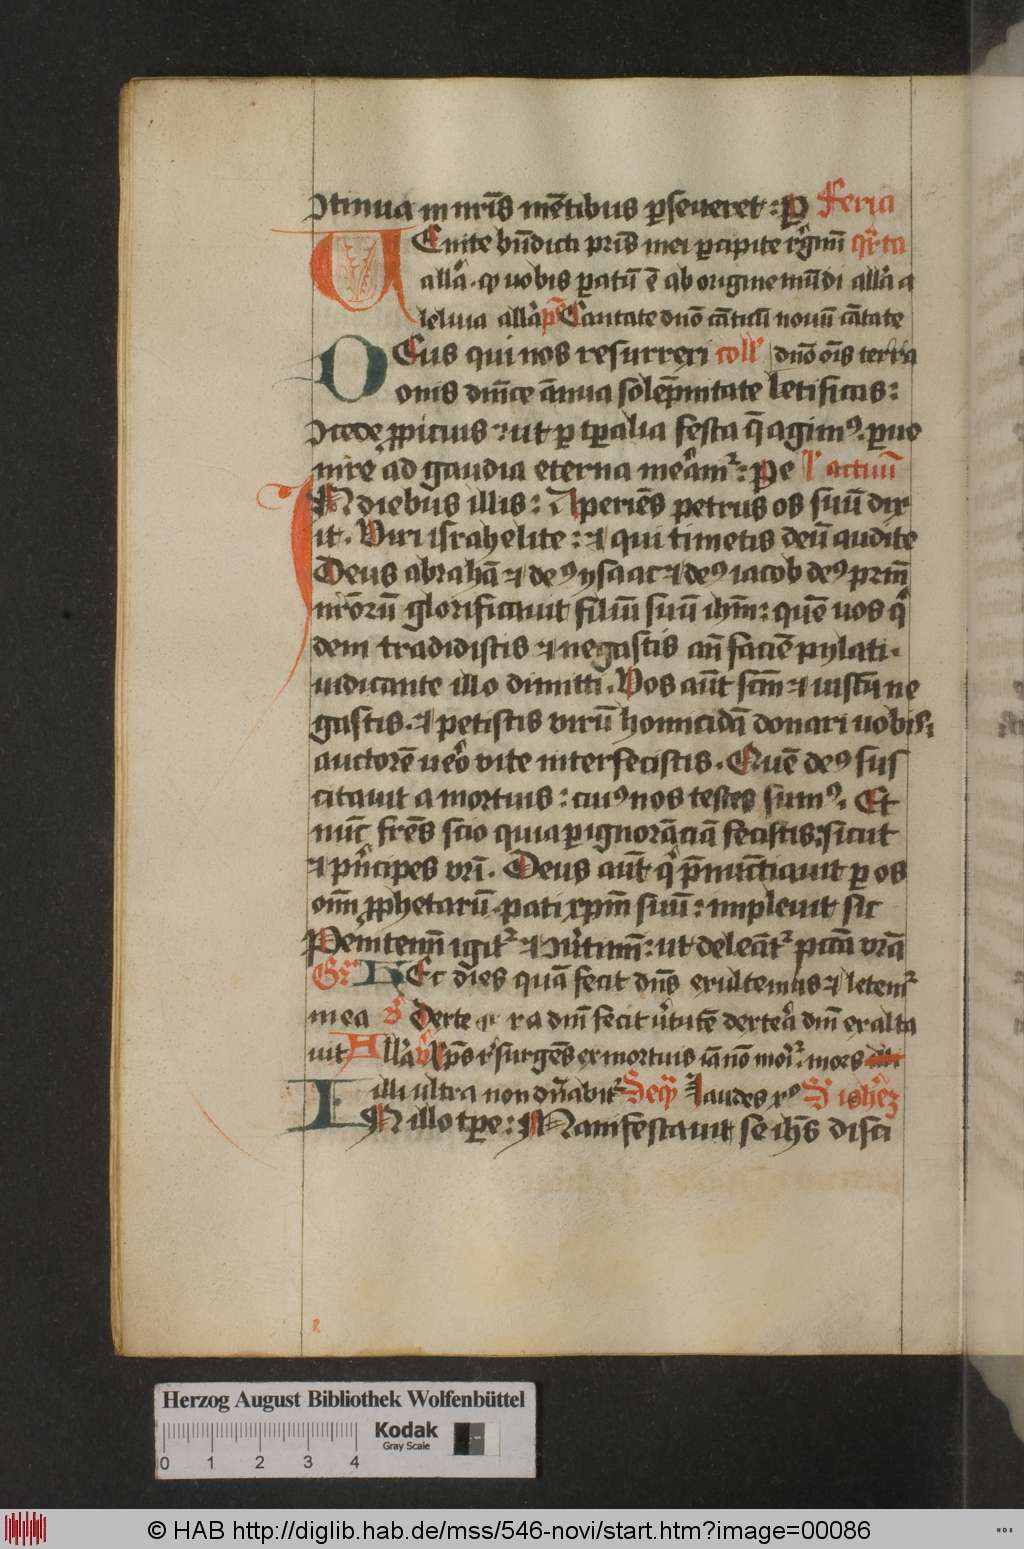 ɔtinua in nr̄is mētibus ꝑseueret : P Feria
VEnite bn̄dicti pr̄is mei ꝑcipite rͥgnū qͣrta
allͣa . qͦ uobis ꝑatū ē ab origine mūdi allͣa a
leluia allͣa ps̄ Cantate dnō cāticū nouū cātate
DEus qui nos resurrecti coll' dnō oīs terra
onis dnīce ānua solēpnitate letificas :
ɔcede ꝓpicius : ut ꝑ tꝑalia festa q̄ agimꝰ . ꝑue
nire ad gaudia eterna meͣamᷣ : Pe l' actuū
IN diebus illis : Aperiēs petrus os suū dix
it . Viri israhelite : ⁊ qui timetis deū audite
Deus abrahā ⁊ deꝰ ysaac ⁊ deꝰ iacob deꝰ prm̄
nr̄orū glorificauit filiū suū ihm̄ : quē uos qͥ
dem tradidistis ⁊ negastis an̄ faciē pylati .
iudicante illo dimitti . Vos aūt scm̄ ⁊ iustū ne
gastis . ⁊ petistis virū homicidā donari uobis :
auctorē ueͦo vite interfecistis . Quē deꝰ sus
citauit a mortuis : cuiꝰ nos testes sumꝰ . Et
nūc fr̄es scio quia ꝑ ignorāciā fecistis : sicut
⁊ pͥncipes vr̄i . Deus aūt qͥ p̄nūctiauit ꝑ os
oīm ꝓphetarū . pati xpm̄ suū : impleuit sic
Penitemī igitᷣ ⁊ ɔuͥtimī : ut deleātᷣ pctā vr̄a
Gr̄ HEc dies quā fecit dn̄s exultemus ⁊ letemᷣ
in ea V̄ Dextera dnī fecit uͥtutē dexteͣa dnī exalta
uit Allͣa V̄ xp̄s rͥsurgēs ex mortuis iā nō moriᷣ : mors
illi ultra non dn̄abitᷣ Seqͣ Laudes xͦ S' ioh̄ez
IN illo tꝑe : Manifestauit se ih̄s disci
Herzog August Bibliothek Wolfenbüttel
Kodak
Gray Scale
0 1 2 3 4
© HAB http://diglib.hab.de/mss/546-novi/start.htm?image=00086